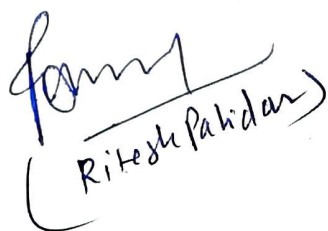 (Ritesh Patidar)